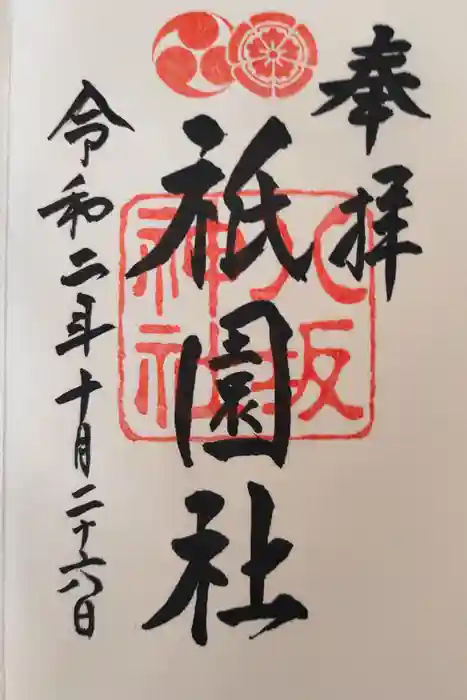 奉拝
八坂
神社
祇園社
令和二年十月二十六日